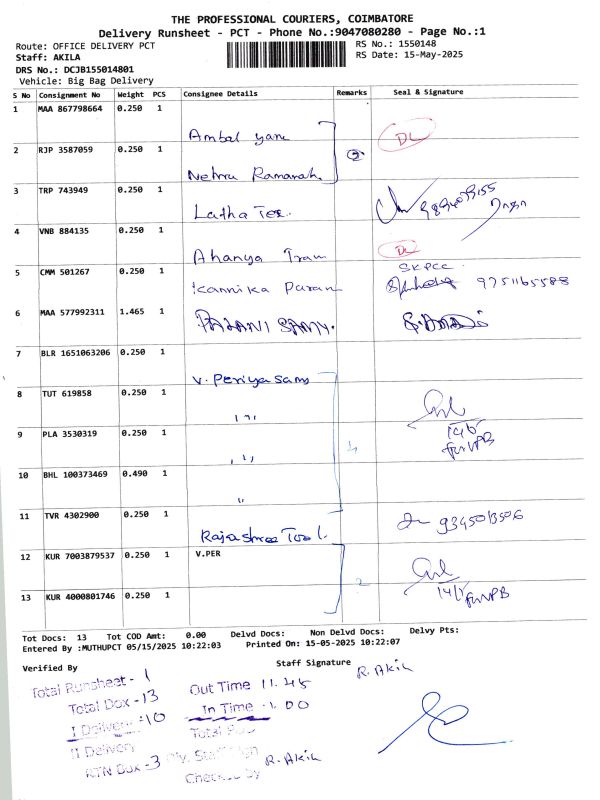 THE PROFESSIONAL COURIERS, COIMBATORE
Delivery Runsheet - PCT - Phone No.:9047080280 - Page No.:1
Route: OFFICE DELIVERY PCT
RS No.: 1550148
Staff: AKILA
RS Date: 15-May-2025
DRS No.: DCJB155014801
Vehicle: Big Bag Delivery
S No Consignment No Weight PCS Consignee Details Remarks Seal & Signature
1 MAA 867798664 0.250 1
Ambal
DL
2 RJP 3587059 0.250 1
Nehru
3 TRP 743949 0.250 1
Latha Tex.
4 VNB 884135 0.250 1
Ahanya
DL
5 CMM 501267 0.250 1
Kannika Param
SKPCC
9751165588
6 MAA 577992311 1.465 1
PALANI SAMY.
7 BLR 1651063206 0.250 1
V. Periyasamy
8 TUT 619858 0.250 1
9 PLA 3530319 0.250 1
10 BHL 100373469 0.490 1
11 TVR 4302900 0.250 1
Rajashree Tool.
9345013506
12 KUR 7003879537 0.250 1 V.PER
13 KUR 4000801746 0.250 1
Tot Docs: 13 Tot COD Amt: 0.00 Delvd Docs: Non Delvd Docs: Delvy Pts:
Entered By :MUTHUPCT 05/15/2025 10:22:03 Printed On: 15-05-2025 10:22:07
Verified By
Staff Signature R. Akila
Total Runsheet - 1
Out Time 11.45
Total Dox - 13
In Time - 1.00
I Delivery - 10
II Delivery
RTN Dox - 3
R. Akila
Checked By